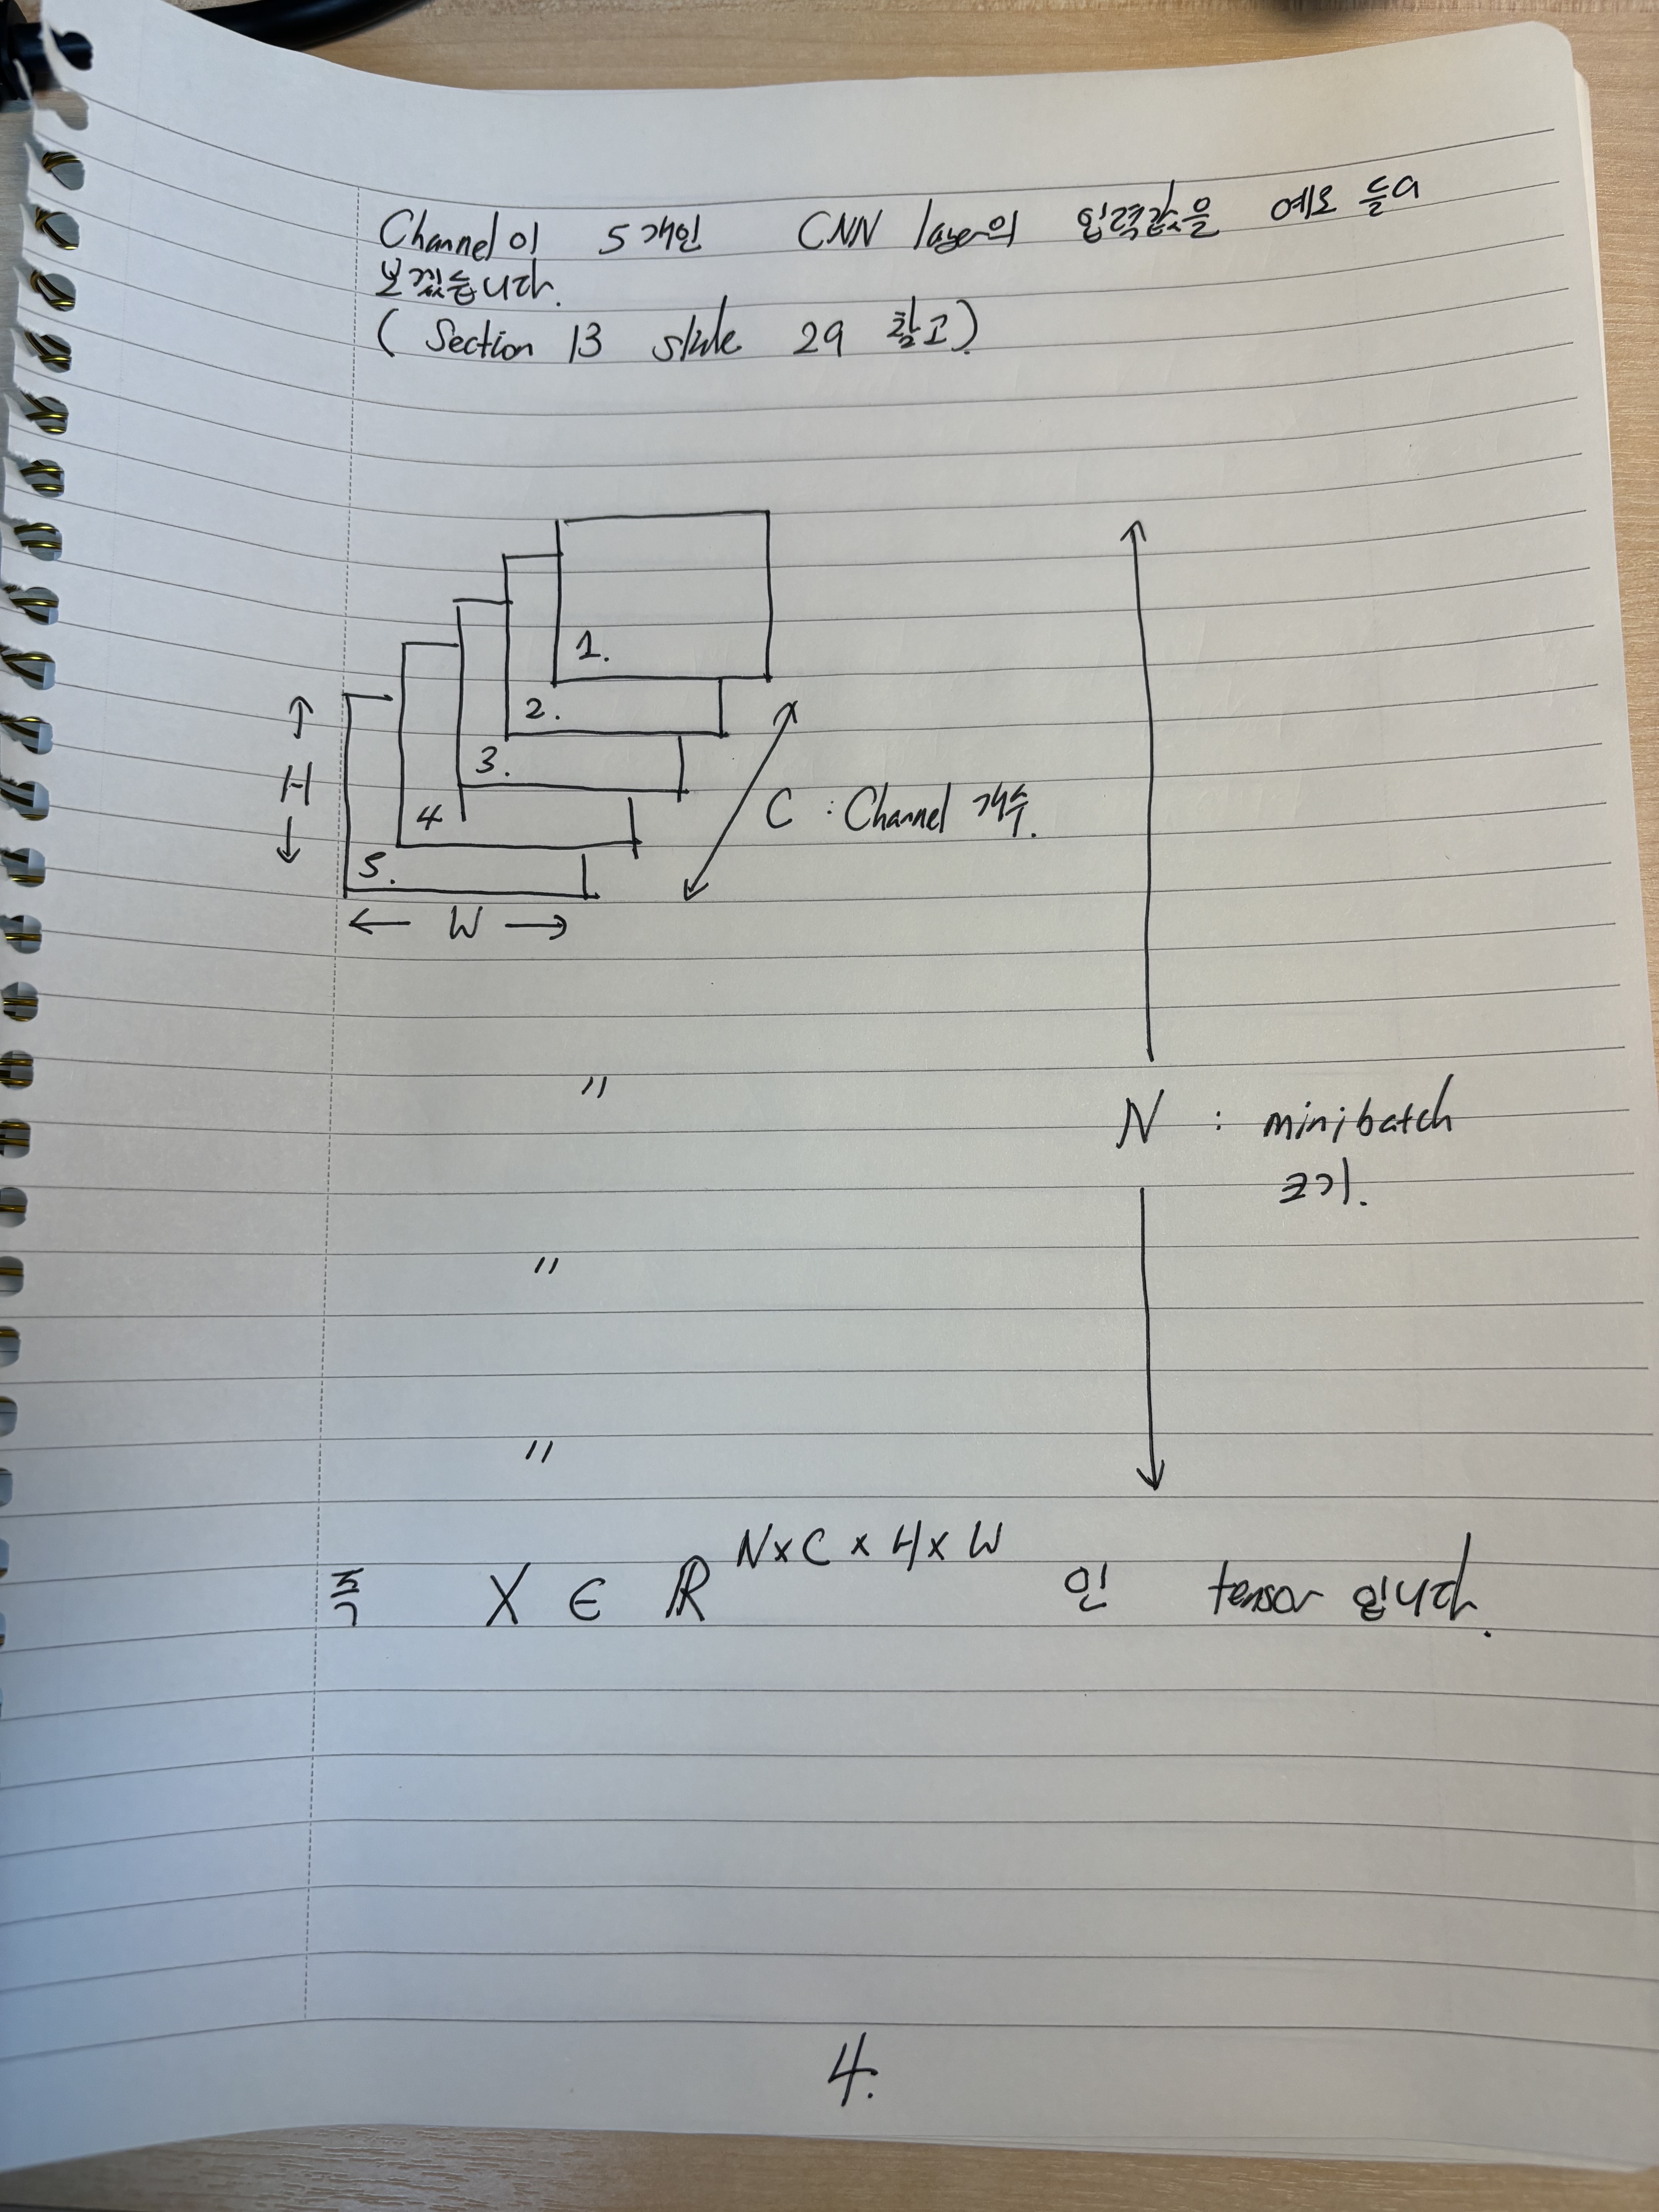 Channel이 5개인 CNN layer의 입력값을 예로 들어
보겠습니다.
( Section 13 slide 29 참고).
1.
2.
3.
4
5.
H
W
C : Channel 개수.
N : minibatch
크기.
〃
〃
〃
즉 X ∈ ℝ^{N×C×H×W} 인 tensor 입니다.
4.